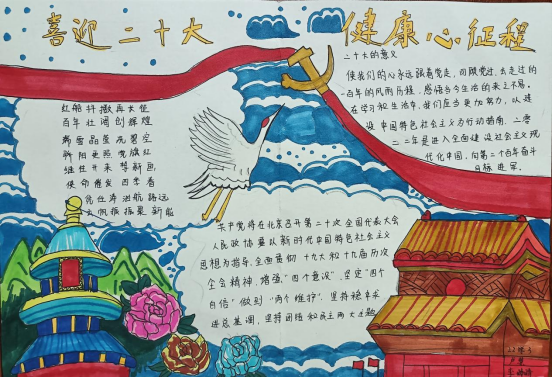 喜迎二十大 健康心征程
二十大的意义
使我们的心永远跟着党走,回顾党过去走过的
一百年的风雨历程,感悟当今生活的来之不易。
在学习和生活中,我们应当更加努力,以建
设中国特色社会主义为行动指南,二零
二二年是进入全面建设社会主义现
代化中国,向第二个百年奋斗
目标进军。
红船扑撒再大使
百年壮阔创辉煌
骄阳更照党旗红
继往开来擘新画
使命催发四季春
共产党将在北京召开第二十次全国代表大会
人民政协要以新时代中国特色社会主义
思想为指导,全面贯彻十九大和十九届历次
全会精神,增强“四个意识”,坚定“四个
自信”做到“两个维护”,坚持稳中求
进总基调,坚持团结和民主两大主题